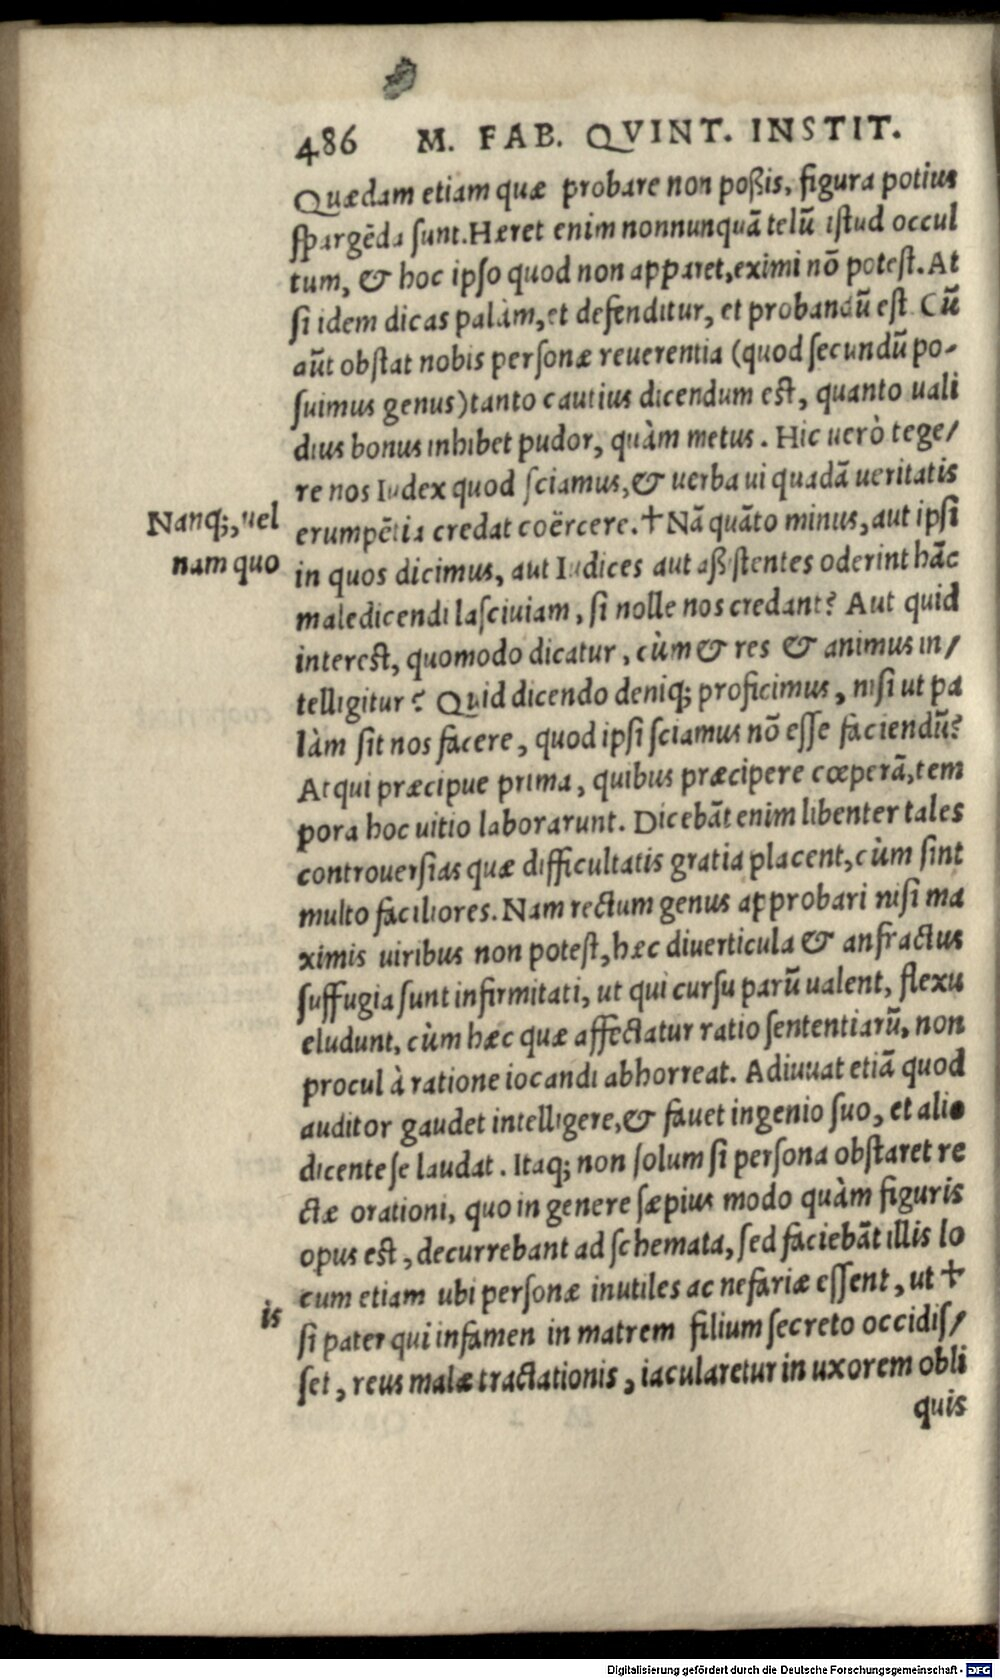 486 M. FAB. QVINT. INSTIT.
Quædam etiam quæ probare non poßis, figura potius
spargēda sunt. Hæret enim nonnunquā telū istud occul
tum, & hoc ipso quod non apparet, eximi nō potest. At
si idem dicas palàm, et defenditur, et probandū est. Cū
aūt obstat nobis personæ reuerentia (quod secundū po-
suimus genus) tanto cautius dicendum est, quanto uali
dius bonus inhibet pudor, quàm metus. Hic uerò tege/
re nos Iudex quod sciamus, & uerba ui quadā ueritatis
Nanq;, uel
erumpētia credat coërcere. † Nā quāto minus, aut ipsi
nam quo
in quos dicimus, aut Iudices aut aßistentes oderint hāc
maledicendi lasciuiam, si nolle nos credant? Aut quid
interest, quomodo dicatur, cùm & res & animus in/
telligitur? Quid dicendo deniq; proficimus, nisi ut pa
làm sit nos facere, quod ipsi sciamus nō esse faciendū?
Atqui præcipue prima, quibus præcipere cœperā, tem
pora hoc uitio laborarunt. Dicebāt enim libenter tales
controuersias quæ difficultatis gratia placent, cùm sint
multo faciliores. Nam rectum genus approbari nisi ma
ximis uiribus non potest, hæc diuerticula & anfractus
suffugia sunt infirmitati, ut qui cursu parū ualent, flexu
eludunt, cùm hæc quæ affectatur ratio sententiarū, non
procul à ratione iocandi abhorreat. Adiuuat etiā quod
auditor gaudet intelligere, & fauet ingenio suo, et alio
dicente se laudat. Itaq; non solum si persona obstaret re
ctæ orationi, quo in genere sæpius modo quàm figuris
opus est, decurrebant ad schemata, sed faciebāt illis lo
cum etiam ubi personæ inutiles ac nefariæ essent, ut †
is
si pater qui infamen in matrem filium secreto occidis/
set, reus malæ tractationis, iacularetur in uxorem obli
quis
Digitalisierung gefördert durch die Deutsche Forschungsgemeinschaft - DFG